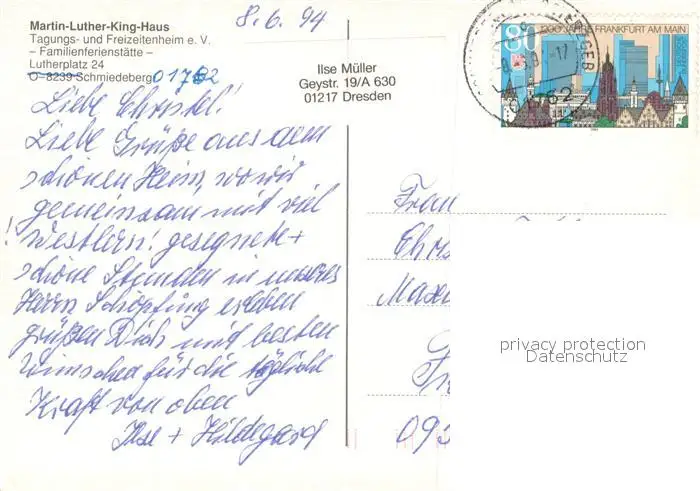 8.6.94
Martin-Luther-King-Haus
Tagungs- und Freizeitenheim e. V.
– Familienferienstätte –
Lutherplatz 24
O-8239 Schmiedeberg 01762
Ilse Müller
Geystr. 19/A 630
01217 Dresden
80 1200 JAHRE FRANKFURT AM MAIN
Liebe Christel!
Liebe Grüße aus dem
schönen Heim, wo wir
gemeinsam mit viel
! Westlern! gesegnete +
schöne Stunden in unseres
Herrn Schöpfung erleben
grüßen Dich mit besten
Wünschen für die tägliche
Kraft von oben
Ilse + Hildegard
Frau
Chris
093
privacy protection
Datenschutz